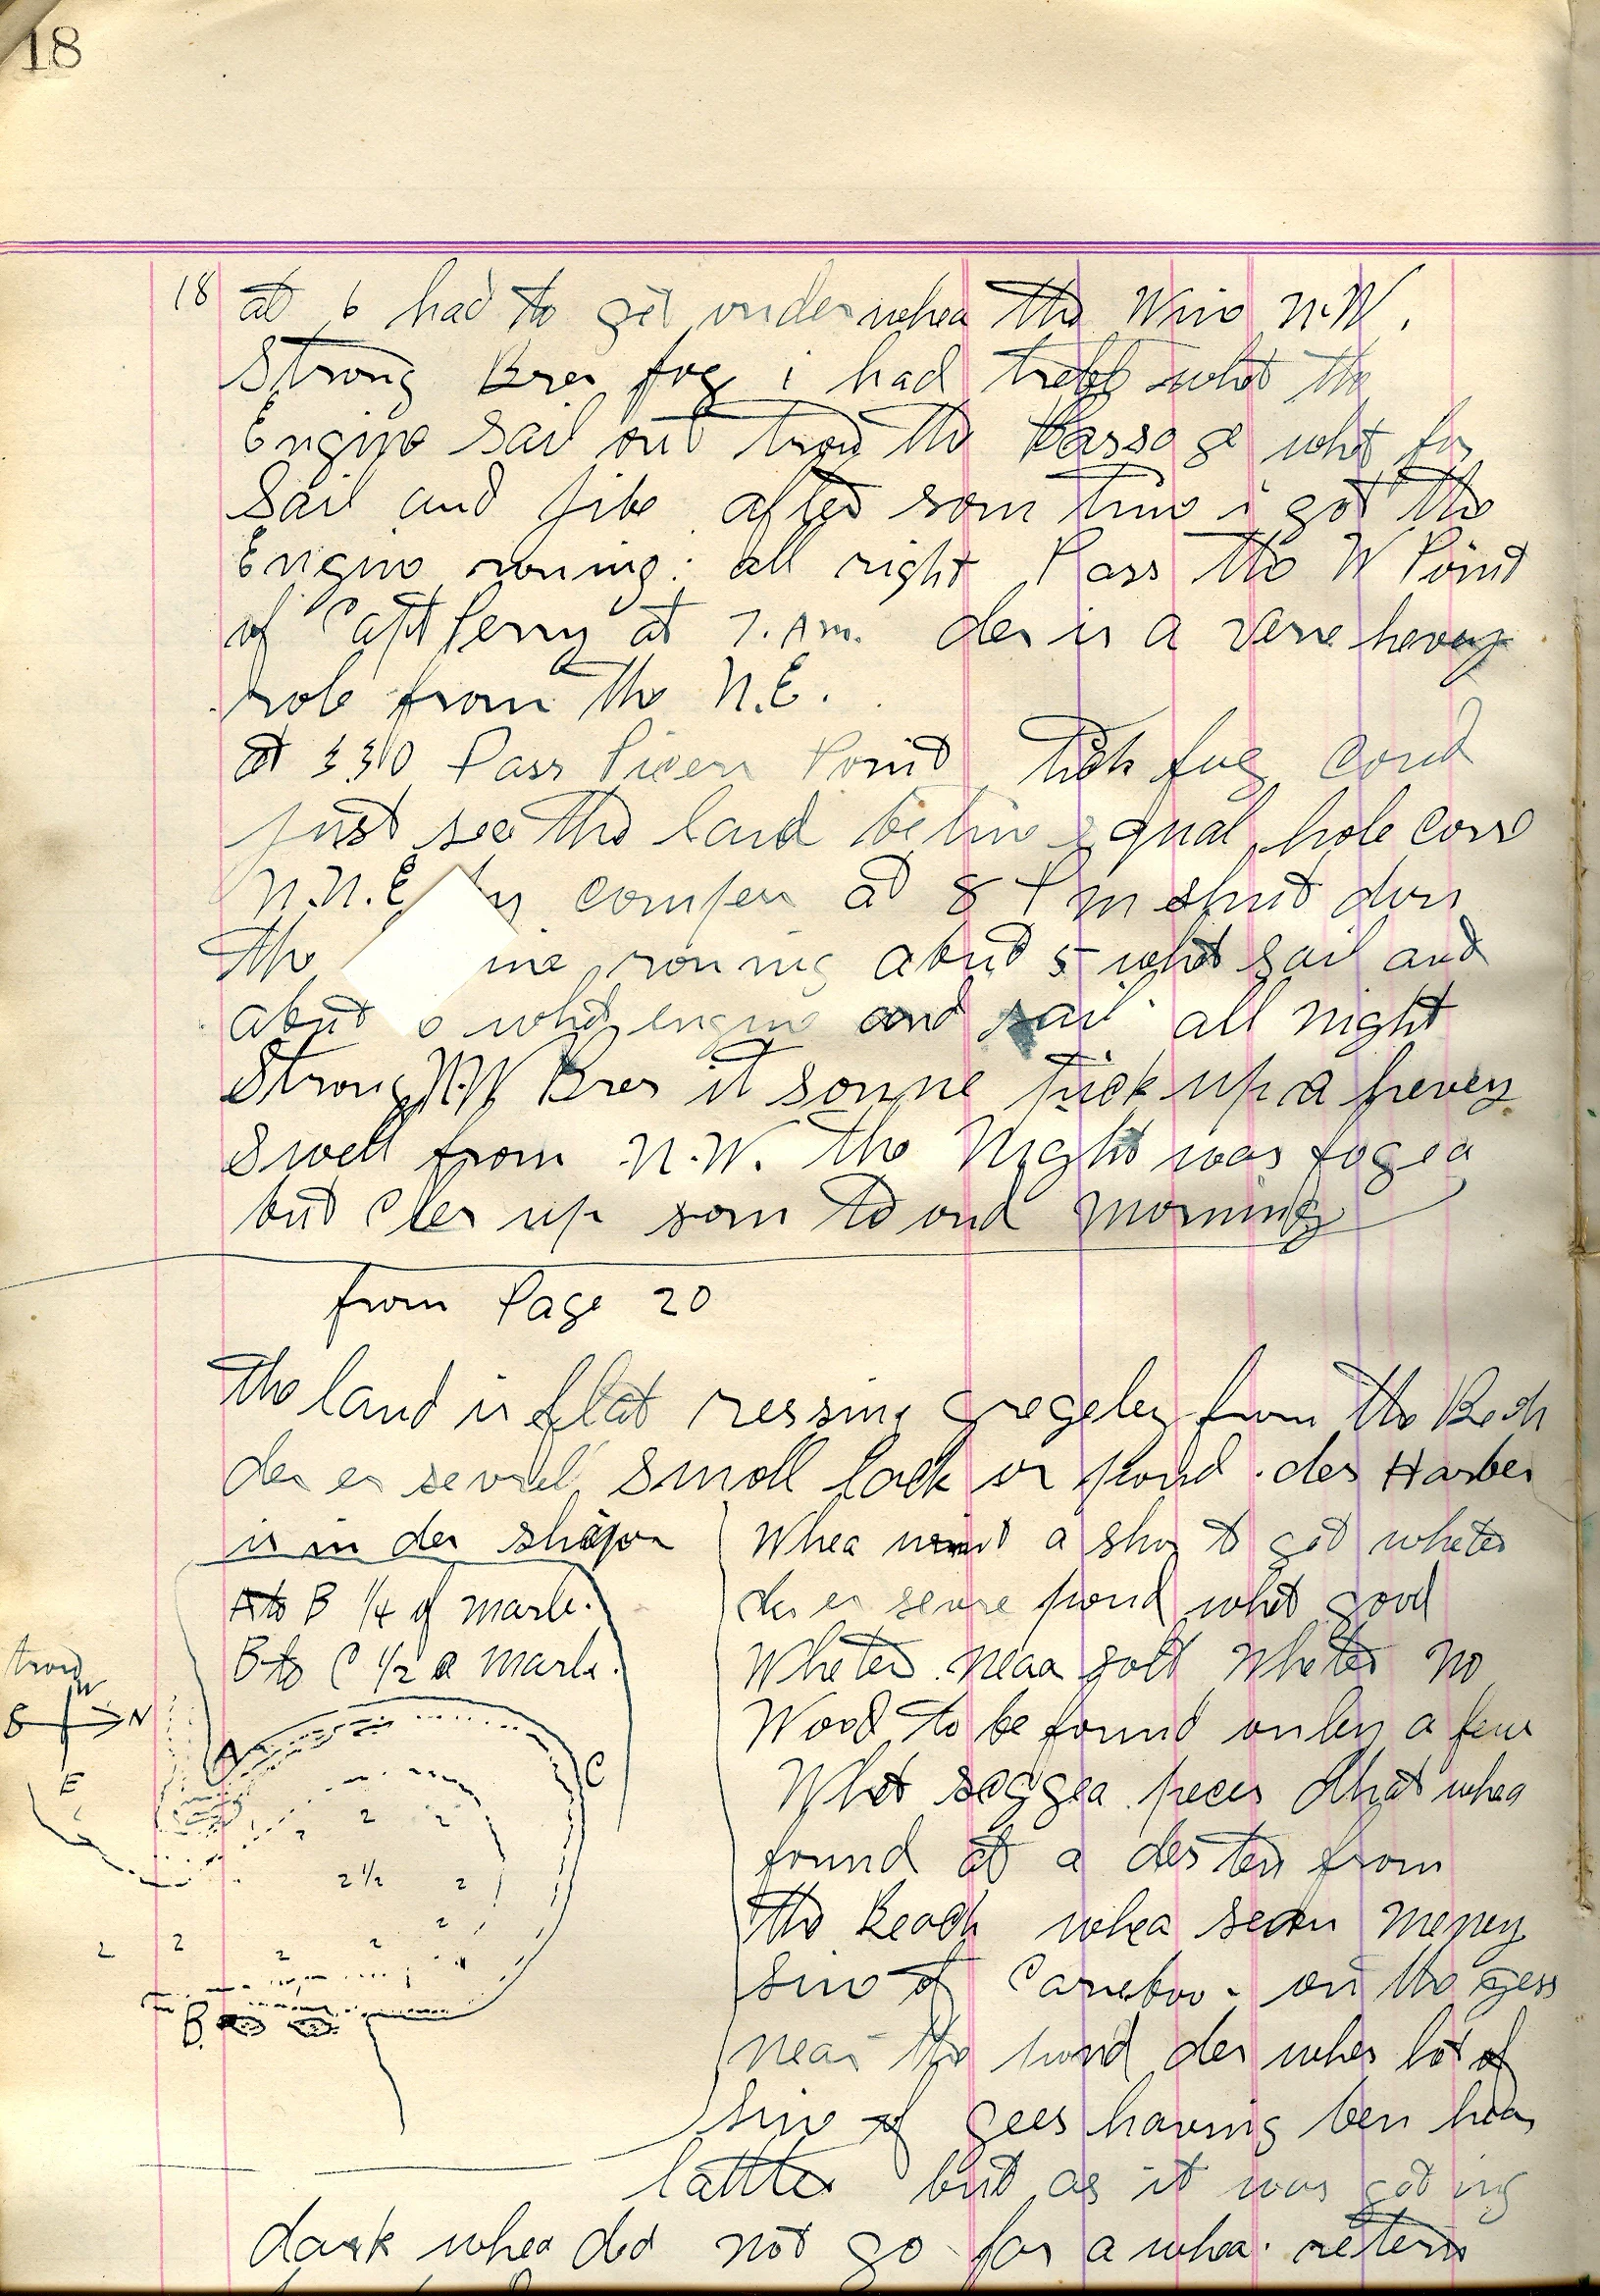 18
18 at 6 had to get under whea the Wino N.W.
Strong Bres fog i had trebl whot the
Engino sail out trou the Passage whot for
Sail and jibe after som timo i got the
Engino roning: all right Pass the W Point
of Capt ferry at 7. A.m. der is a vere hevey
role from the N.E.
at 3 30 Pass Point tick fog coud
just see the land be timo squal hole cors
N.N.E by compass at 8 P m shut don
the ine roning abut 5 whot sail and
abut whot engino and sail all night
Strong N.W Bres it sonne tuck up a hevey
Swell from N.W. the Night was fogea
but Cler up som to oud morning
from Page 20
the land is flat ressing from the Bech
der er sevrel smoll lack or pond. der Harber
is in der shapon
A to B 1/4 of marle.
B to C 1/2 a marle.
trou
W
S N
E
A
C
2 2
2
2 1/2 2
2
2 2 2 2
B.
Whea a sho t got wheter
der er sevre pond whot good
Wheter neaa solt wheter no
Wood to be found onley a few
Whot soggea peces that whea
found at a desten from
the Beach whea seen meney
sino of Careboo. on the gess
near the pond der wher lot of
sino of gees having ben hear
lattler but as it was goting
dark whea did not go far a whea. retern